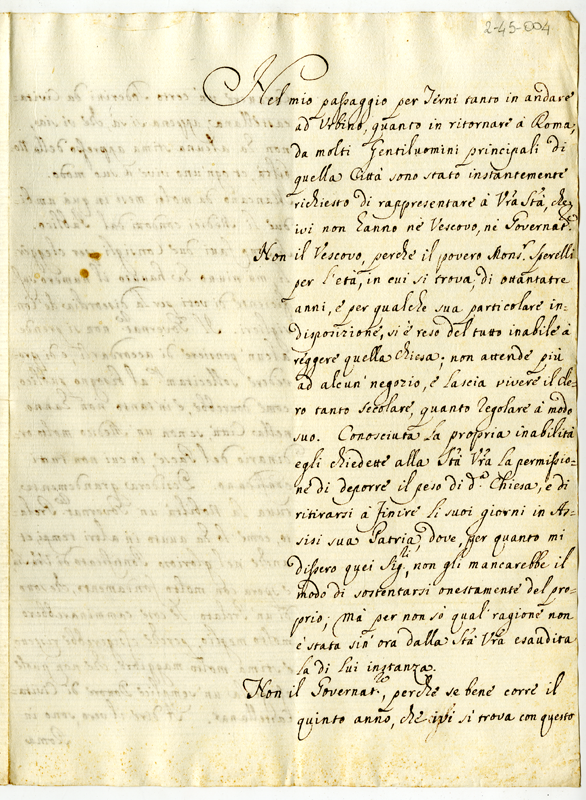 2-45-004
Nel mio passaggio per Terni tanto in andare
ad Urbino, quanto in ritornare à Roma,
da molti Gentiluomini principali di
quella Città sono stato instantemente
richiesto di rappresentare à Vrã Stà, che
ivi non hanno nè Vescovo, nè Governat.re
Non il Vescovo, perche il povero Mons.r Sperelli
per l'età, in cui si trova, di ottantatre
anni, e per qualche sua particolare in-
disposizione, si è reso del tutto inabile à
reggere quella Chiesa; non attende più
ad alcun' negozio, e lascia vivere il Cle-
ro tanto secolare, quanto Regolare à modo
suo. Conosciuta la propria inabilità
egli chiedette alla Stà Vrã la permissio-
ne di deporre il peso di d.a Chiesa, e di
ritirarsi à finire li suoi giorni in As-
sisi sua Patria, dove, per quanto mi
dissero quei Sig.ri, non gli mancarebbe il
modo di sostentarsi onestamente del pro-
prio; Mà per non sò qual' ragione non
è stata sin' ora dalla Stà Vrã esaudita
la di lui instanza.
Non il Governat.re, perche se bene corre il
quinto anno, che ivi si trova con questo